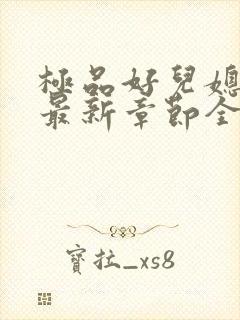 極品好兒媳
最新章節全
寶拉_xs8